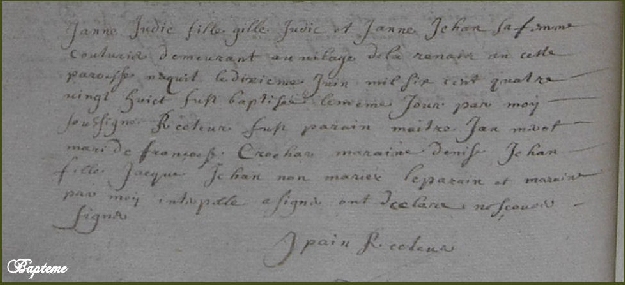 Janne Judic fille gille Judic et Janne Jehan sa femme
couturie demeurant au vilage de la renais en cette
paroisse naquit le dixieme Juin mil six cent quatre
vingt huict fust baptisee le meme Jour par moy
soussigne Recteur fust parain maitre Jan
mari de francoise Crochar maraine denise Jehan
fille Jacque Jehan non mariez le parain et maraine
par moy interpelle a signe ont declare ne scavoir
signe
Jpain Recteur
Bapteme